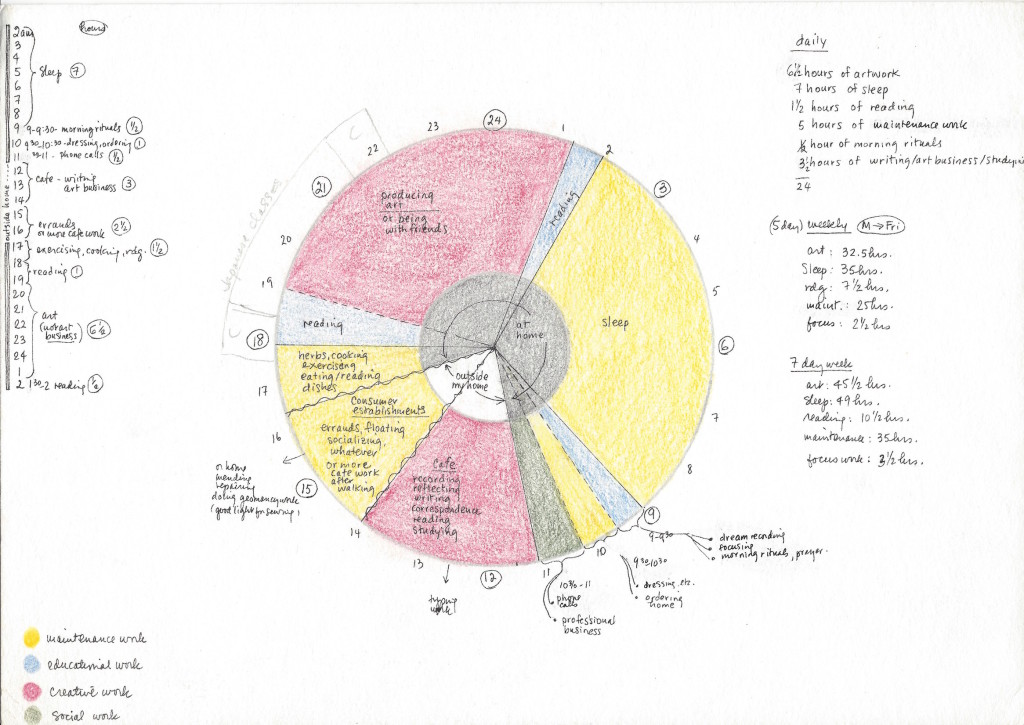 hours
2am
3
4
5 Sleep 7
6
7
8
9 9-9:30 - morning rituals 1/2
10 9 30 - 10:30 - dressing, ordering 1
11 10 30 - 11 - phone calls 1/2
12
13 cafe - writing
art business 3
14
15
16 errands
or more cafe work 2 1/2
17 exercising, cooking, rdg. 1 1/2
18
19 reading 1
20
21
22 art
(not art
business) 6 1/2
23
24
1
2 1 30 - 2 reading 1/2
outside home
daily
6 1/2 hours of artwork
7 hours of sleep
1 1/2 hours of reading
5 hours of maintenance work
1/2 hour of morning rituals
3 1/2 hours of writing/art business/studying
24
(5 day) weekly M → Fri
art: 32.5 hrs.
Sleep: 35 hrs.
rdg: 7 1/2 hrs.
maint.: 25 hrs.
focus: 2 1/2 hrs
7 day week
art: 45 1/2 hrs.
sleep: 49 hrs.
reading: 10 1/2 hrs.
maintenance: 35 hrs.
focus work: 3 1/2 hrs.
24
1
2
3
4
5
6
7
8
9
10
11
12
13
14
15
16
17
18
19
20
21
22
23
C
classes
C
producing
art
or being
with friends
reading
sleep
at
home
outside
my home
reading
herbs, cooking
exercising
eating/reading
dishes
Consumer
establishments
errands, floating
socializing,
whatever
or more
cafe work
after
walking
Cafe
recording
reflecting
writing
correspondence
reading
studying
or home
mending
repairing
doing geomancy work
(good light for sewing)
typing
work
9-9 30
dream recording
focusing
morning rituals, prayer.
9 30 10 30
dressing, etc.
ordering
home
10 30 - 11
phone
calls
professional
business
maintenance work
educational work
creative work
social work